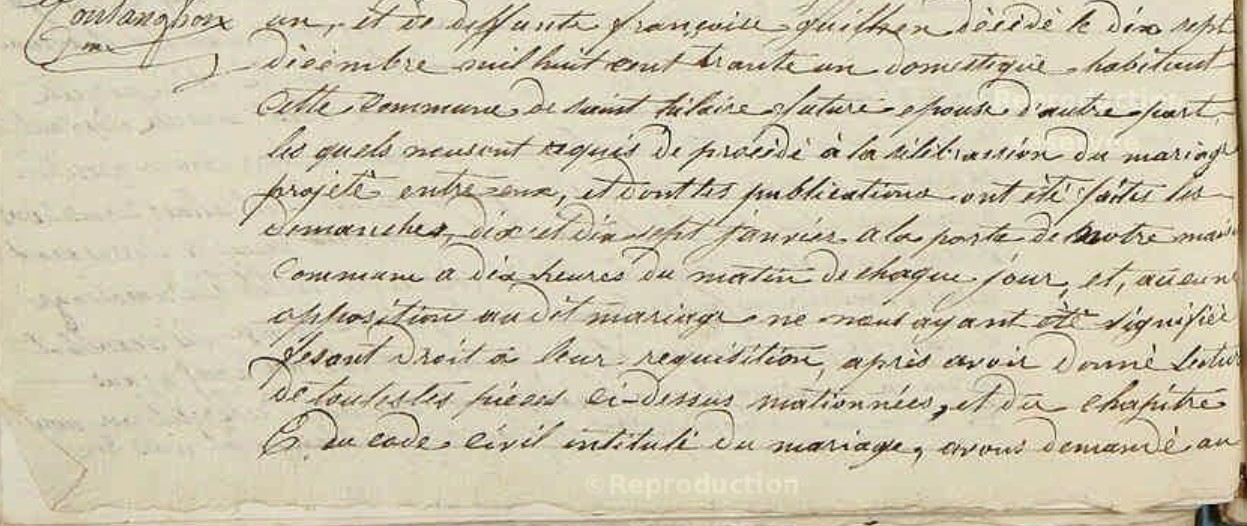 un, et de deffunte françoise guilhen décédé le dix sept
décembre mil huit cent trante un domestique habitant
cette commune de saint hilaire future epouse d'autre part,
les quels nous ont requis de procédé à la célébrassion du mariage
projeté entre eux, et dont les publications ont été faites les
demanches, dix et dix sept janvier a la porte de notre maison
commune a dix heures du matin de chaque jour, et, aucune
opposition au dit mariage ne nous ayant été signifiée
fesant droit à leur requisition, après avoir donné lectur
de toutes les pièces ci-dessus mationnées, et du chapitre
6. du code civil intitulé du mariage, avons demandé au
© Reproduction